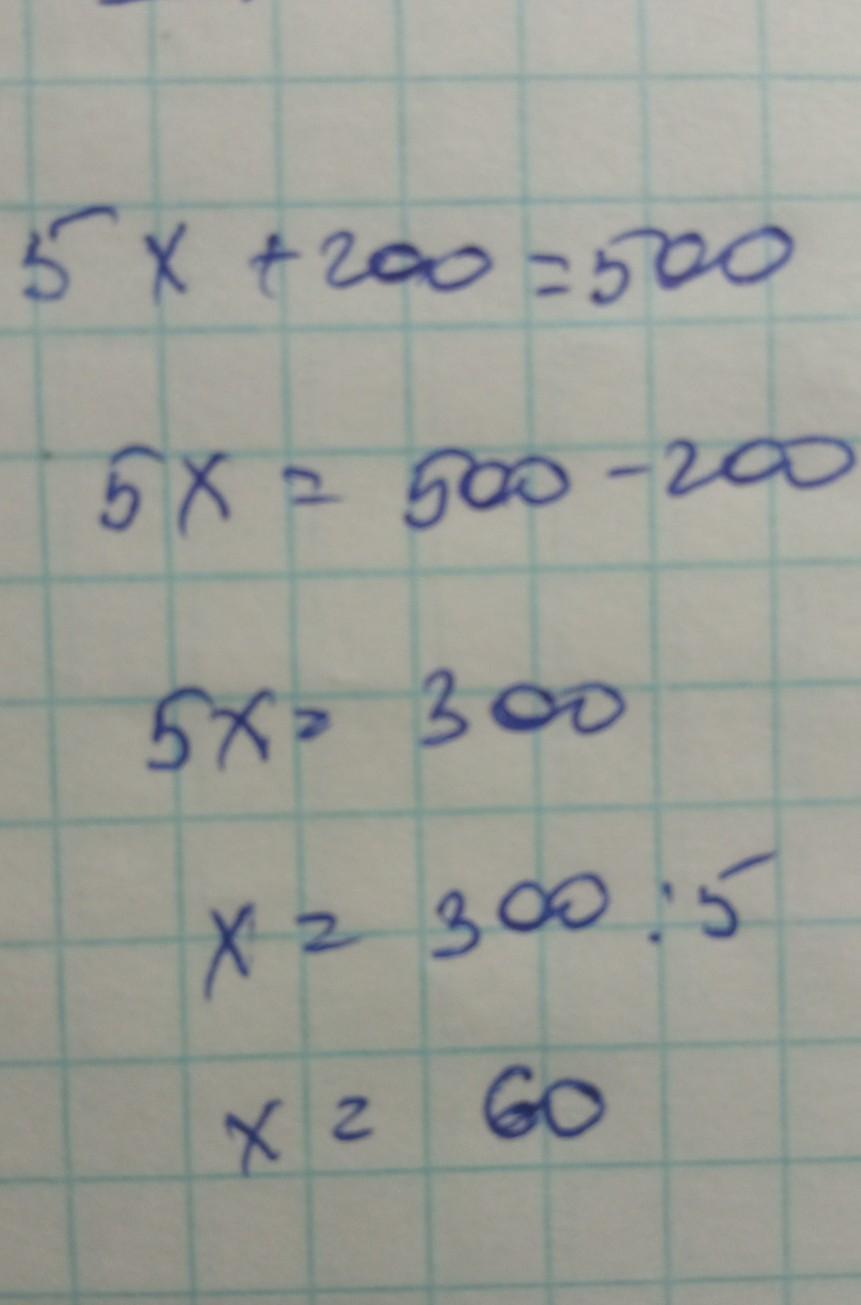 5x + 200 = 500
5x = 500 - 200
5x = 300
x = 300 : 5
x = 60